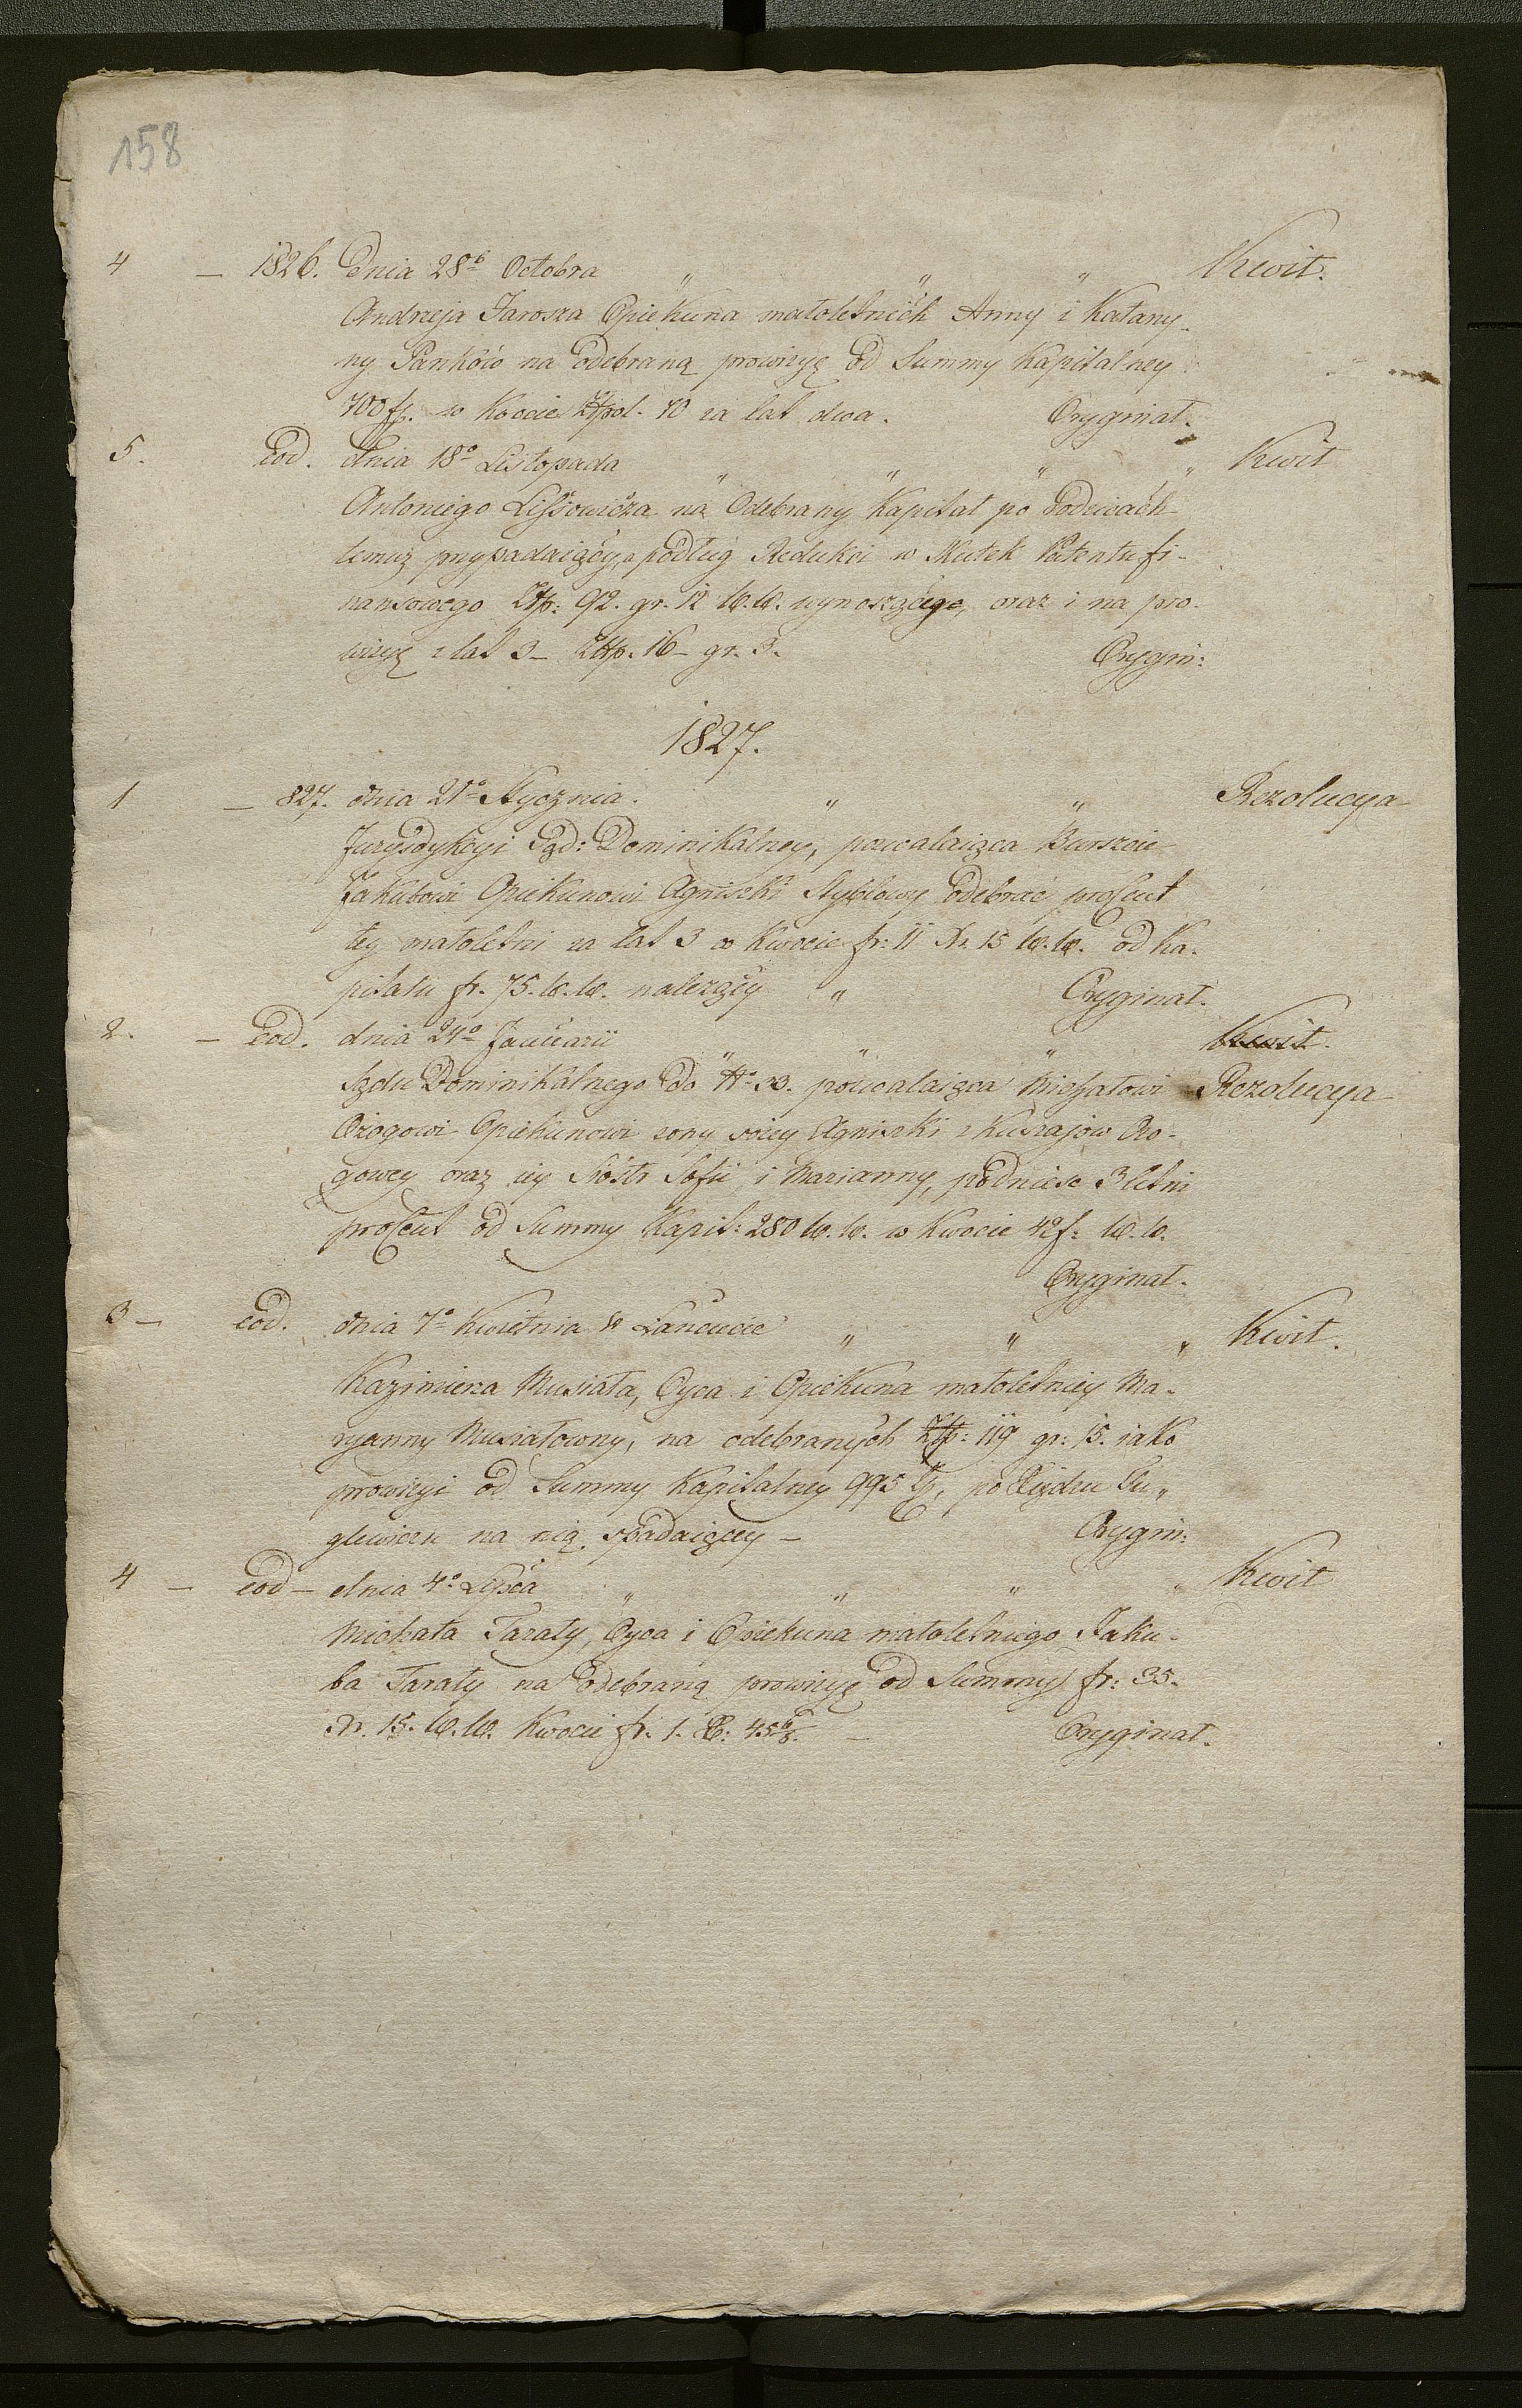 158
4 — 1826. dnia 28ᵇ Octobra " " " Kwit.
Andrzeja Jarosza Opiekuna małoletnich Anny i Katarzy-
ny Panków na odebraną prowizyę od Summy Kapitalney
700 fl. w Kwocie Złpol. 70 za lat dwa. Oryginał.
5. Eod. dnia 18º Listopada " " " " Kwit
Antoniego Lissowicza na Odebrany Kapitał po Rodzicach
temuż przypadaiący, a podług Redukci w Skutek Patentu fi-
nansowego Złp: 92. gr. 12 W.W. wynoszącego, oraz i na pro-
wizyę z lat 3 — Złp. 16 — gr. 3. Orygin:
1827.
1 — 827. dnia 21º Stycznia. " " Rezolucya
Jurysdykcyi Sąd: Dominikalney, pozwalaiąca Burszcie
Jakubowi Opiekunowi Agniszki Styblowy odebrać procent
tey małoletni za lat 3 w Kwocie fr: 11 Xr. 15 W.W. od Ka-
pitału fr. 75. W.W. należący " Oryginał.
2. — Eod. dnia 24º Januarii " " " Kwit.
Sądu Dominikalnego do Nº 33. pozwalaiąca Michałowi Rezolucya
Ożogowi Opiekunowi żony swey Agniszki z Kuszajów Ożo-
gowey oraz iey Sióstr Sofii i Marianny, podnieść 3 letni
procent od Summy Kapit: 280 W.W. w Kwocie 42 f: W.W.
Oryginał.
3 — eod. dnia 7º Kwietnia w Łańcucie " " " Kwit.
Kazimierza Musiała, Oyca i Opiekuna małoletniey Ma-
ryanny Musiałowny, na odebranych Złp: 119 gr: 15. iako
prowizyi od Summy Kapitalney 995 Zł, po
na nią spadaiącey — Orygin:
4 — eod — dnia 4º Lipca " " " " Kwit
Michała Taraty, Oyca i Opiekuna małoletniego Jaku-
ba Taraty na odebraną prowizyę od Summy fr: 35.
Xr. 15. W.W. Kwocie fr. 1. X: 45 6/8. — Oryginał.